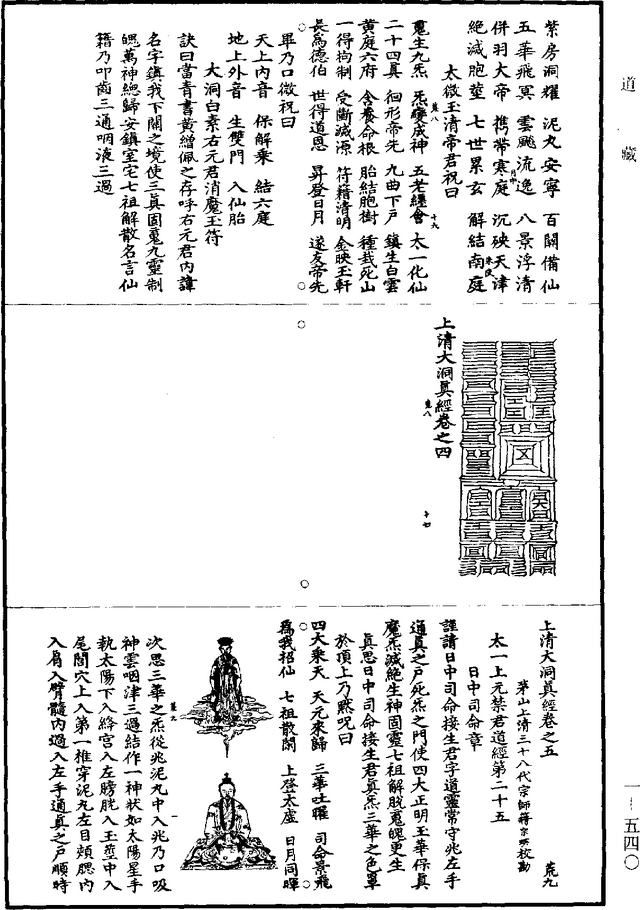 道藏
紫房洞耀　泥丸安寧　百關備仙
五華飛冥　雲飈流逸　八景浮清
併羽大帝　携帶寒庭　沉殃天津
絕滅胞莖　七世累玄　解結南庭
太微玉清帝君祝曰
䰟生九炁　炁變成神　五老經會　太一化仙
二十四真　徊形帝先　九曲下戶　鎮生白雲
黃庭六府　含養命根　胎結胞樹　種栽死山
一得拘制　受斷滅源　符籍清明　金映玉軒
長為德伯　世得道恩　昇登日月　遂友帝先
畢乃口微祝曰
天上內音　保解乘　結六庭
地上外音　生雙門　入仙胎
大洞白素右元君消魔玉符
訣曰當青書黃繒佩之存呼右元君內諱
名字鎮我下關之境使三真固䰟九靈制
魄萬神總歸安鎮室宅七祖解散名言仙
籍乃叩齒三通咽液三過
上清大洞真經卷之四
上清大洞真經卷之五
茅山上清三十八代宗師蔣宗瑛校勘
太一上元禁君道經第二十五
日中司命章
謹請日中司命接生君字道靈常守兆左手
通真之戶死炁之門使四大正明玉華保真
魔炁滅絕生神固靈七祖解脫䰟魄更生
真思日中司命接生君真炁三華之色罩
於頂上乃默呪曰
四大乘天　天元來歸　三華吐曜　司命景飛
為我招仙　七祖散關　上登太虛　日月同暉
次思三華之炁從兆泥丸中入兆乃口吸
神雲咽津三過結作一神狀如太陽星手
執太陽下入絳宮入左膀胱入玉莖中入
尾閭穴上入第一椎穿泥丸左目頰腮內
入肩入臂髓內過入左手通真之戶順時
一—五四〇